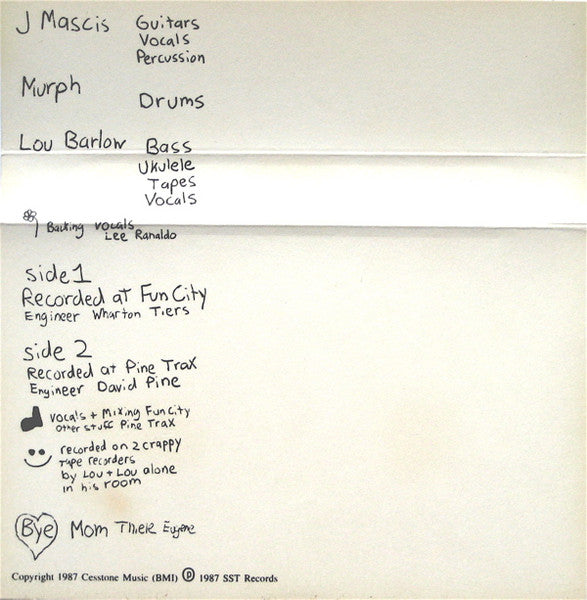 J Mascis Guitars
Vocals
Percussion
Murph Drums
Lou Barlow Bass
Ukulele
Tapes
Vocals
Backing vocals
Lee Ranaldo
side 1
Recorded at Fun City
Engineer Wharton Tiers
side 2
Recorded at Pine Trax
Engineer David Pine
vocals + mixing Fun City
other stuff Pine Trax
recorded on 2 crappy
Tape recorders
by Lou + Lou alone
in his room
Bye Mom Thiele Eugene
Copyright 1987 Cesstone Music (BMI) Ⓟ 1987 SST Records